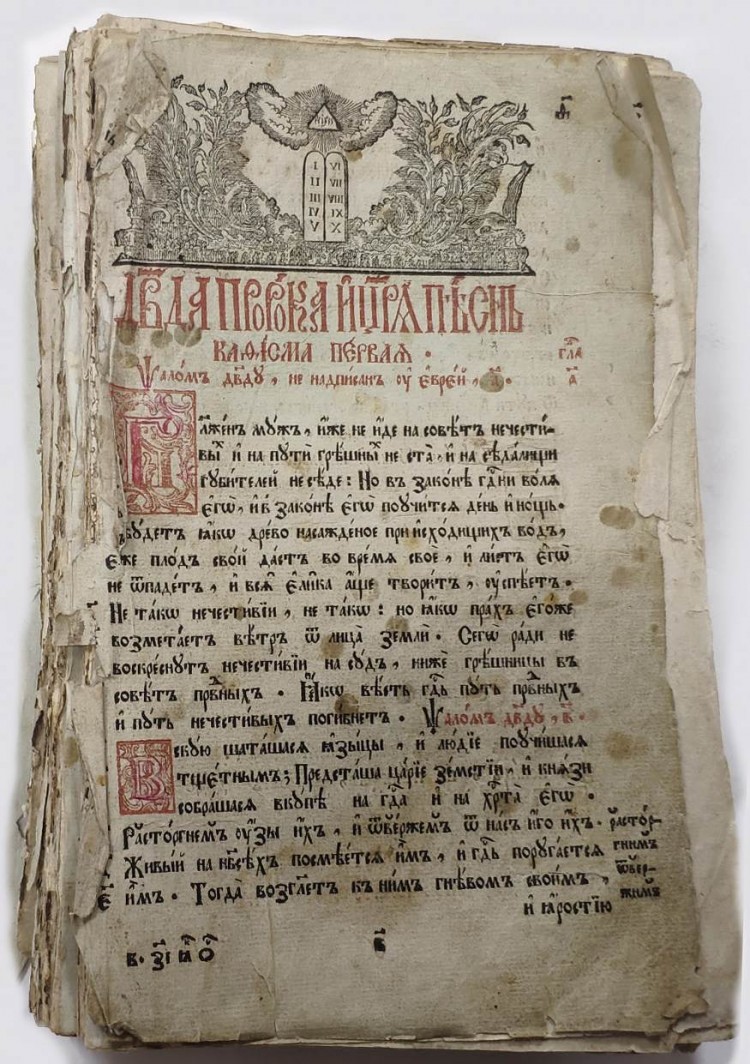 І ІІ ІІІ ІѴ Ѵ
ѴІ ѴІІ ѴІІІ ІХ Х
Дв҃да прⷪ҇ро́ка и҆ цр҃ѧ̀ пѣ́снь
каѳі́сма пе́рваѧ . гла́
а҃
Ѱало́мъ дв҃дꙋ , не надпи́санъ ᲂу҆ є҆врє́й , а҃ .
Бл҃же́нъ мꙋ́жъ , и҆́же не и҆́де на совѣ́тъ нечести́-
выⷯ и҆ на пꙋтѝ грѣ́шныⷯ не ста̀ , и҆ на сѣда́лищи
гꙋби́телей не сѣ́де : Но въ зако́нѣ гдⷭ҇ни во́лѧ
є҆гѡ̀ , и҆ в зако́нѣ є҆гѡ̀ поꙋчи́тсѧ де́нь и҆ но́щь .
бꙋ́детъ ꙗ҆́кѡ дре́во насажде́ное при и҆схо́дищихъ во́дъ ,
є҆́же пло́дъ сво́й да́стъ во вре́мѧ своѐ , и҆ ли́стъ є҆гѡ̀
не ѿпаде́тъ , и҆ всѧ̑ є҆ли́ка а҆́ще твори́тъ , ᲂу҆спѣ́етъ .
Не та́кѡ нечести́вїи , не та́кѡ : но ꙗ҆́кѡ пра́хъ є҆го́же
возмета́етъ вѣ́тръ ѿ лица̀ землѝ . Сегѡ̀ ра́ди не
воскре́снꙋтъ нечести́вїи на сꙋ́дъ , нижѐ грѣ́шницы въ
совѣ́тъ првⷣныхъ . Ꙗ҆́кѡ вѣ́сть гдⷭ҇ь пꙋ́ть првⷣныхъ
и҆ пꙋ́ть нечести́выхъ поги́бнетъ . Ѱало́мъ дв҃дꙋ , в҃ .
Вскꙋ́ю шата́шасѧ ꙗ҆зы́цы , и҆ лю́дїе поꙋчи́шасѧ
тще́тнымъ ; Предста́ша ца́рїе зе́мстїи , и҆ кнѧ́зи
собра́шасѧ вкꙋ́пѣ на гдⷭ҇а и҆ на хрⷭ҇та̀ є҆гѡ̀ .
Расто́ргнемъ ᲂу҆́зы и҆́хъ , и҆ ѿве́ржемъ ѿ на́съ и҆́го и҆́хъ . расто́р-
гнимъ
Живы́й на нб҃сѣ́хъ посмѣе́тсѧ и҆̀мъ , и҆ гдⷭ҇ь порꙋга́етсѧ ѿве́р-
жимъ
и҆̀мъ . Тогда̀ возгл҃етъ къ ни́мъ гнѣ́вомъ свои́мъ ,
и҆ ꙗ҆́ростїю
в҃